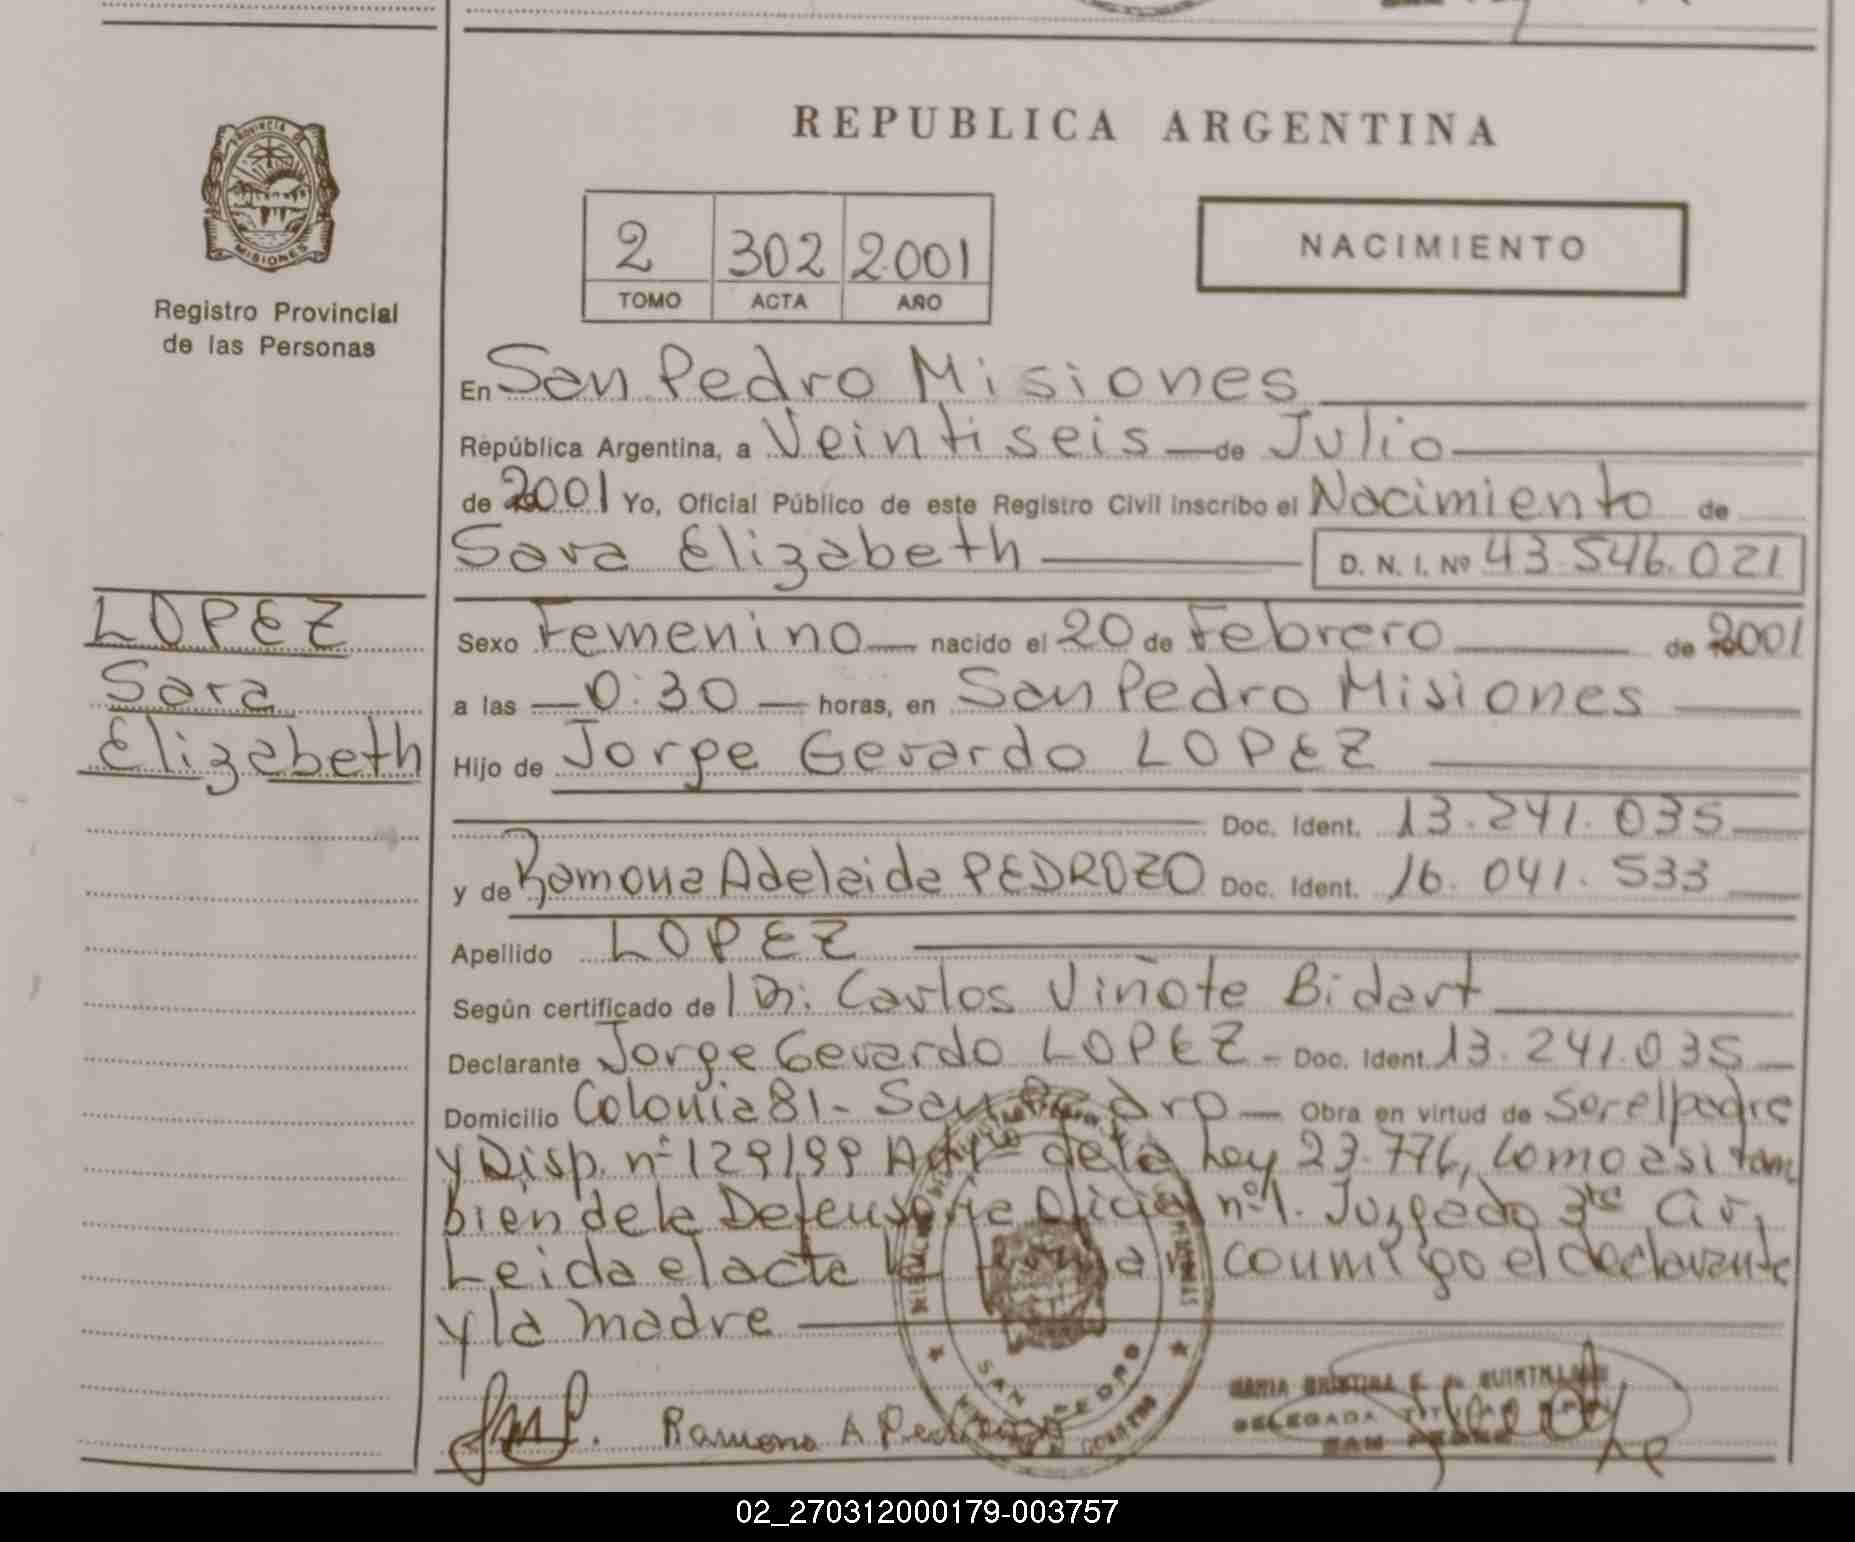 REPUBLICA ARGENTINA
PROVINCIA DE
MISIONES
Registro Provincial
de las Personas
2 302 2001
TOMO ACTA AÑO
NACIMIENTO
En San Pedro Misiones
República Argentina, a Veintiseis de Julio
de 2001 Yo, Oficial Público de este Registro Civil inscribo el Nacimiento de
Sara Elizabeth D. N. I. Nº 43.546.021
LOPEZ
Sara
Elizabeth
Sexo Femenino nacido el 20 de Febrero de 2001
a las 0:30 horas, en San Pedro Misiones
Hijo de Jorge Gerardo LOPEZ
Doc. Ident. 13.241.035
y de Ramona Adelaida PEDROZO Doc. Ident. 16.041.533
Apellido LOPEZ
Según certificado de Dr: Carlos Viñote Bidart
Declarante Jorge Gerardo LOPEZ - Doc. Ident. 13.241.035
Domicilio Colonia 81- San Pedro Obra en virtud de Ser el padre
y Disp. nº 129/99 de la Ley 23.776, como asi tam
bien de la Defensoria Oficial nº1. Juzgado 3ra Cir.
Leida el acta la firman conmigo el declarante
y la madre
Ramona A Pedrozo
SAN PEDRO
DELEGADA TITULAR
SAN PEDRO
02_270312000179-003757